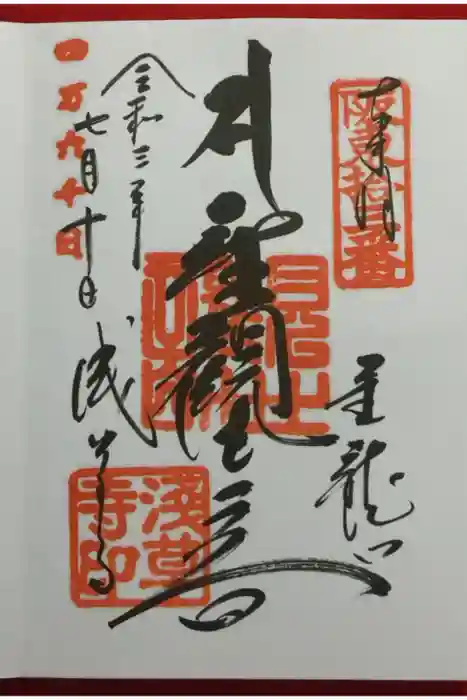 奉拝
阪東拾三番
金龍山
聖観世音
令和三年
七月十日
四万六千日
浅草寺
淺草寺印